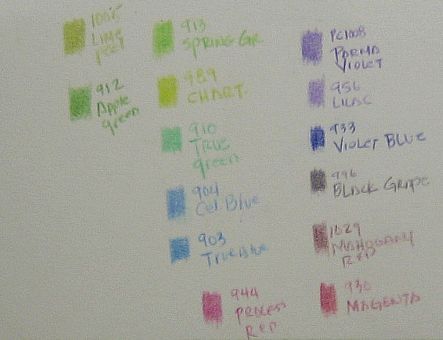 1005
LIME
peel
912
Apple
green
913
SPRING GR
989
CHART.
910
TRUE
green
904
Cel Blue
903
True Blue
944
PROCESS
RED
PC1008
PARMA
VIOLET
956
LILAC
933
VIOLET BLUE
996
BLACK GRAPE
1029
MAHOGANY
RED
930
MAGENTA